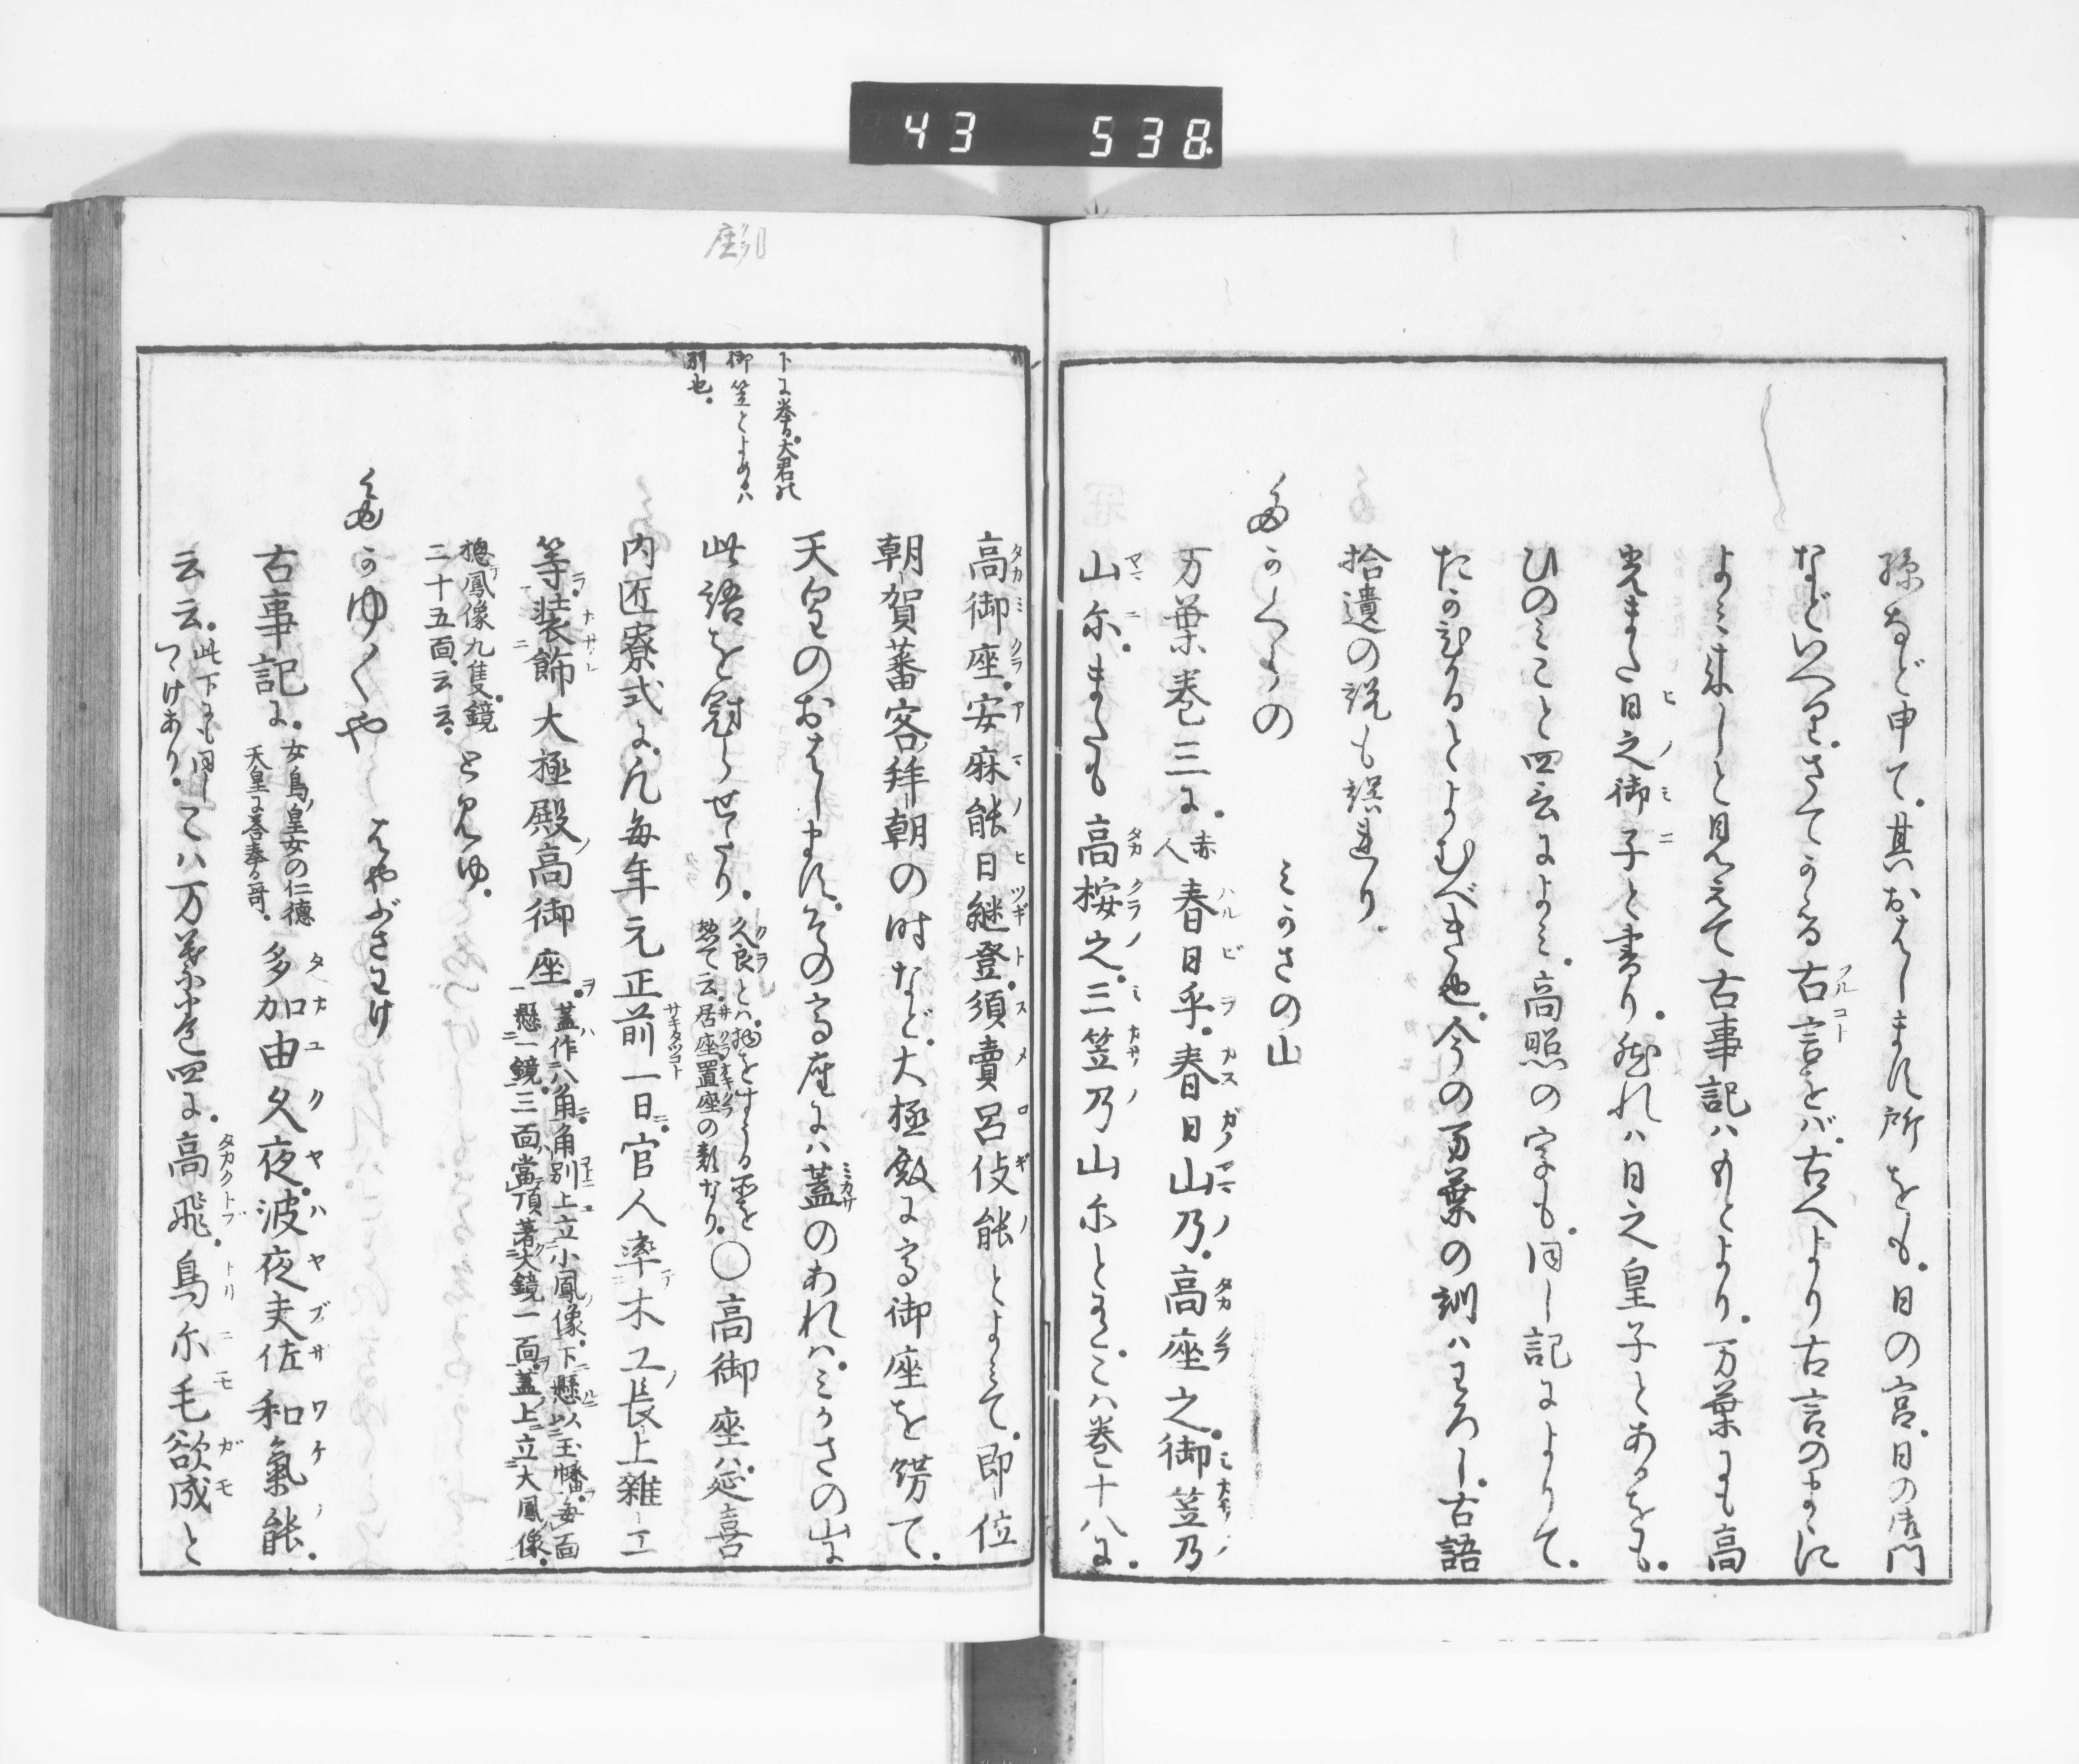 43 538
孫など申て。其おはします所をも。日の宮。日の御門
などいへり。さてかゝる古言をバ。古へより古言のまに
よみ来しと見えて古事記ハもとより。万葉にも高
光また日之御子と書り。然れハ日之皇子とあるをも。
ひのみこと四言によみ。高照の字も。同し記によりて。
たかひかるとよむべき也。今の万葉の訓ハわろし。古語
拾遺の説も誤れり。
たかくらの みかさの山
万葉巻三に。赤人春日乎。春日山乃。高座之。御笠乃
山尓。またも高桉之。三笠乃山尓とあり。こハ巻十八に。
高御座。安麻能日継登。須賣呂伎能とよみて。即位
朝賀蕃客拜朝の時など。大極殿に高御座を錺て。
天皇のおはします。その高座にハ蓋のあれハ。みかさの山に
下に挙る。大君の
御笠とよめるハ
別也。
此語を冠らせたり。久良とハ物をすうる所を
惣て云。居座置座の類なり。〇高御座ハ。延喜
内匠寮式に。凡毎年元正前一日。官人率木工長上雜工
等。装飾大極殿高御座。蓋作八角。角別上立小鳳像。下懸以玉幡。毎面
懸鏡三面。當頂著大鏡一面。蓋上立大鳳像。
惣鳳像九隻。鏡
二十五面。云云。と見ゆ。
たかゆくや はやぶさわけ
古事記に。女鳥皇女の仁德
天皇に答奉る哥。多加由久夜。波夜夫佐和氣能。
云云。此下にも同し
つゝけあり。こハ万葉巻四に。高飛。鳥尓毛欲成と